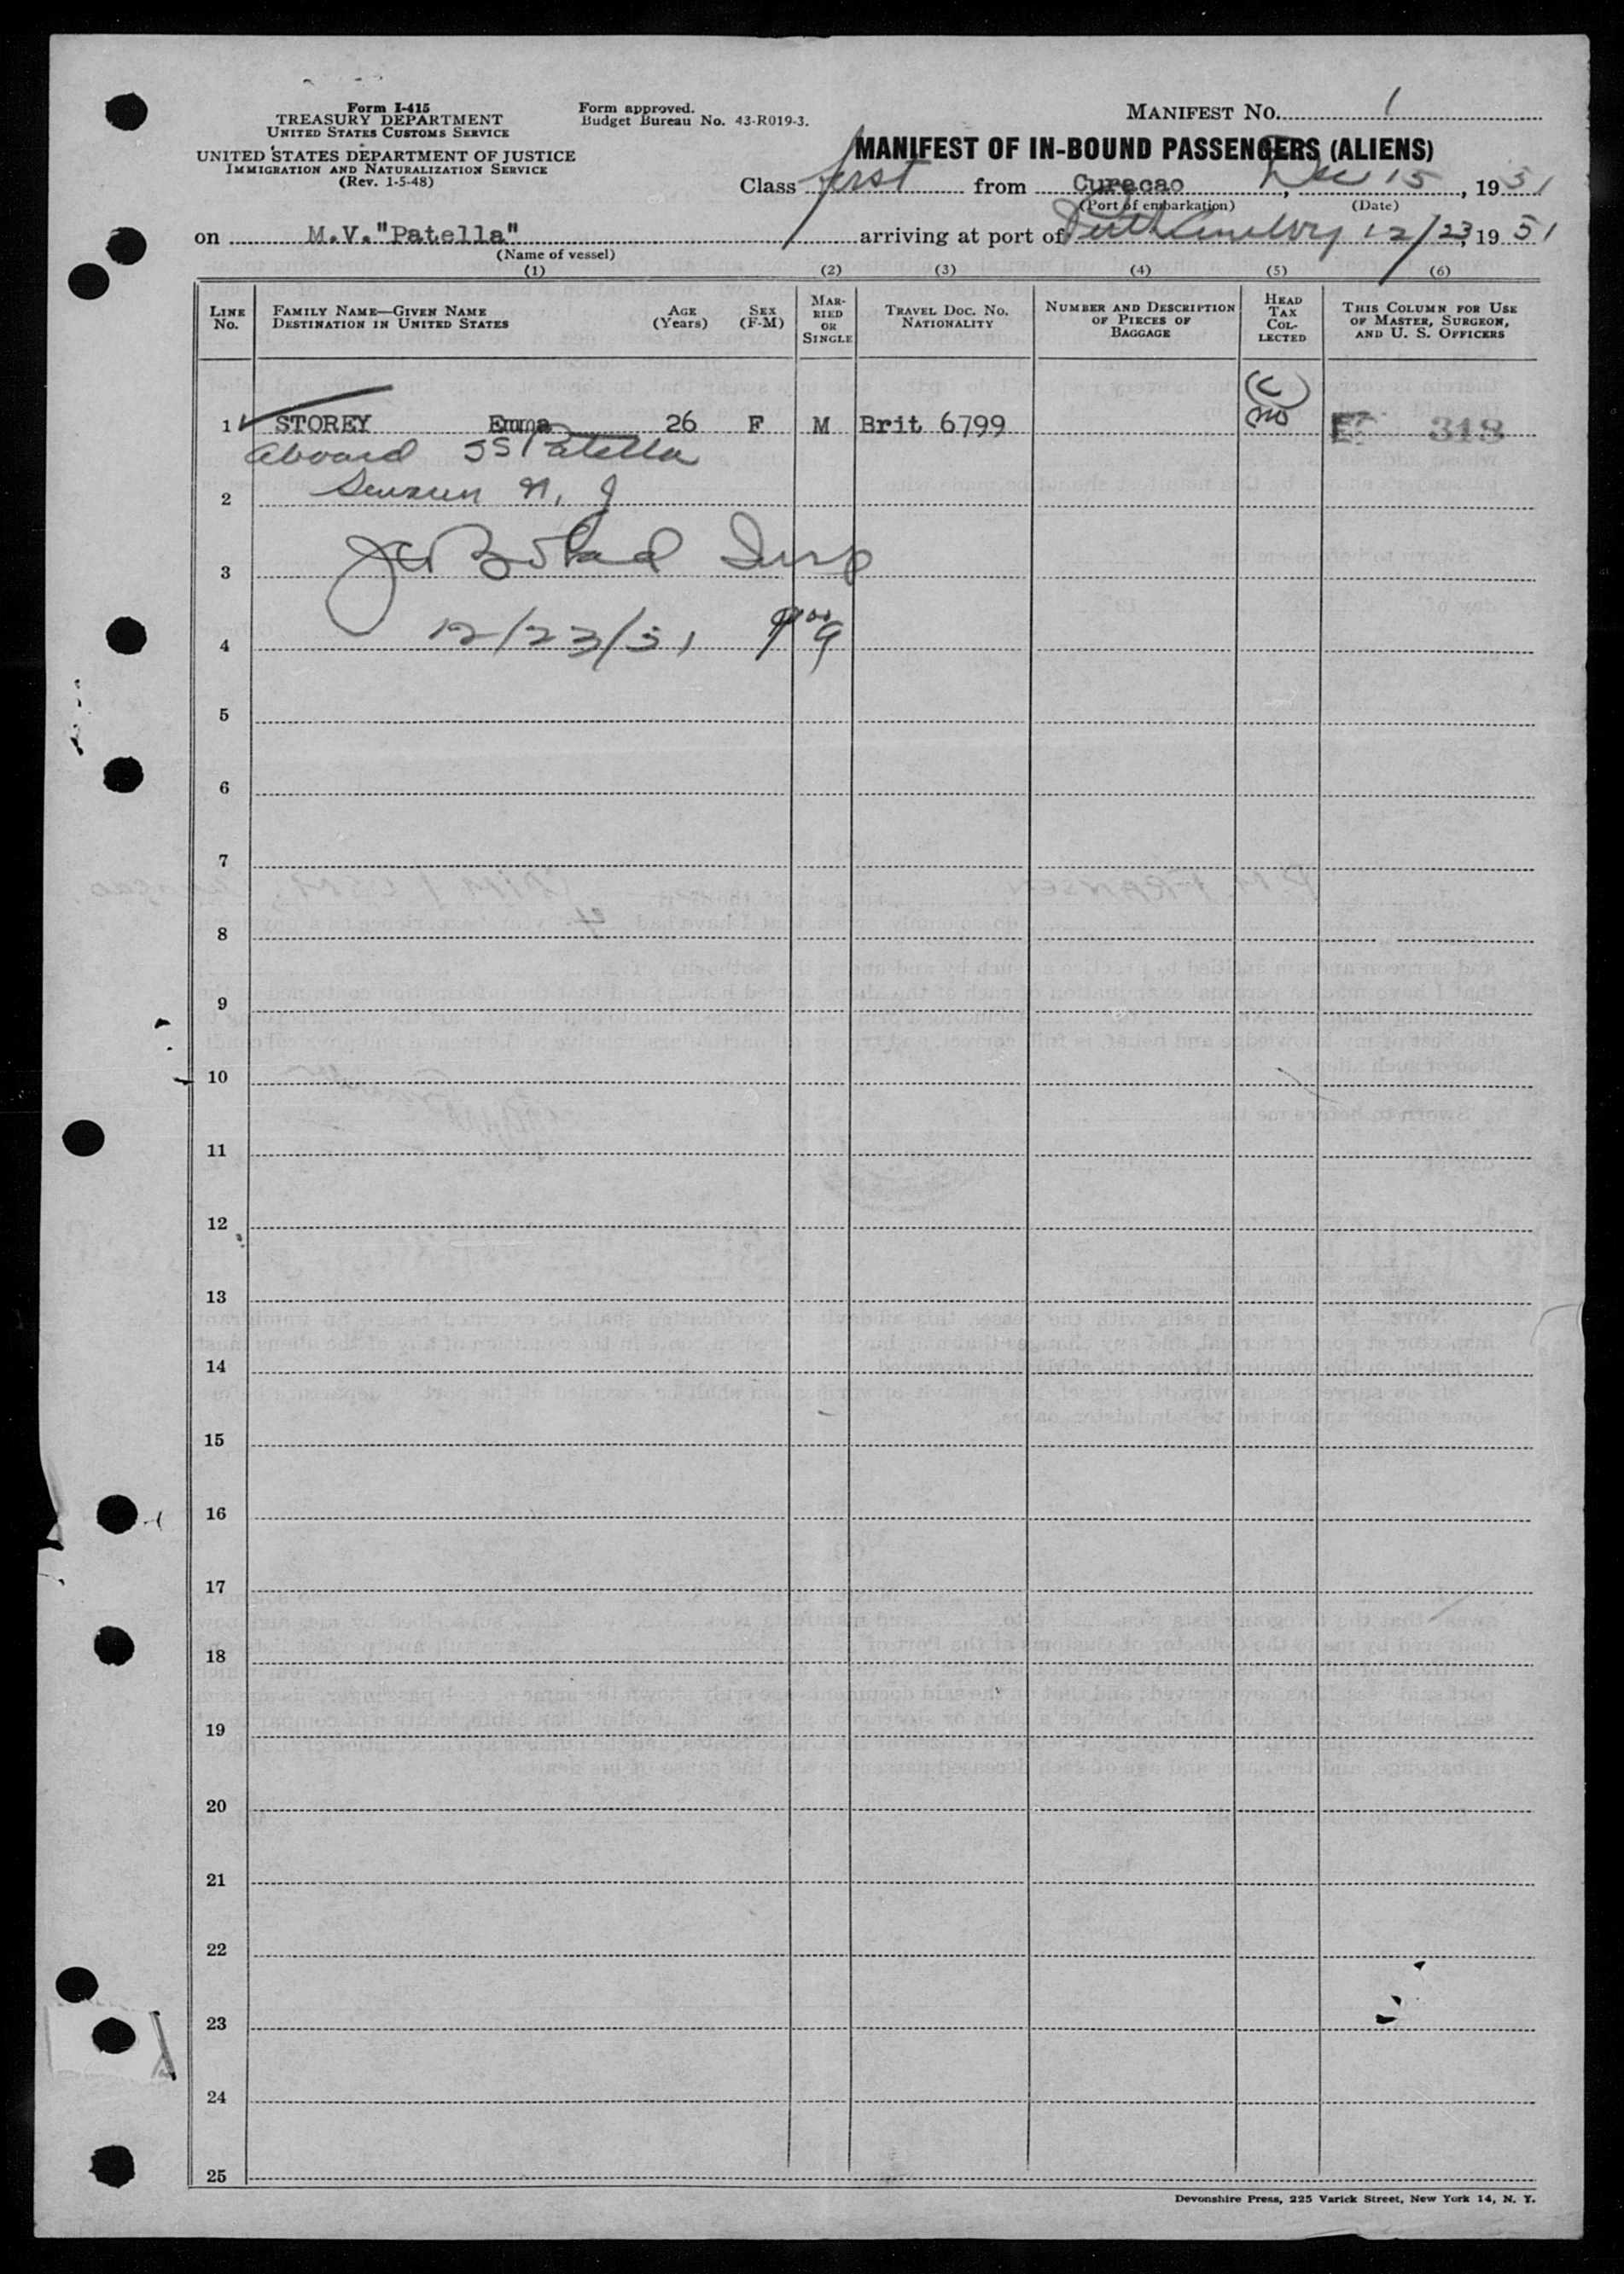 Form I-415
TREASURY DEPARTMENT
UNITED STATES CUSTOMS SERVICE
UNITED STATES DEPARTMENT OF JUSTICE
IMMIGRATION AND NATURALIZATION SERVICE
(Rev. 1-5-48)
Form approved.
Budget Bureau No. 43-R019-3.
MANIFEST No. 1
MANIFEST OF IN-BOUND PASSENGERS (ALIENS)
Class first from Curacao, Dec 15, 1951
(Port of embarkation) (Date)
on M.V."Patella" arriving at port of Perth Amboy 12/23, 1951
(Name of vessel)
(1) (2) (3) (4) (5) (6)
LINE No.
FAMILY NAME—GIVEN NAME
DESTINATION IN UNITED STATES
AGE (Years)
SEX (F-M)
MARRIED OR SINGLE
TRAVEL DOC. NO.
NATIONALITY
NUMBER AND DESCRIPTION OF PIECES OF BAGGAGE
HEAD TAX COLLECTED
THIS COLUMN FOR USE OF MASTER, SURGEON, AND U. S. OFFICERS
(C)
1 STOREY Emma 26 F M Brit 6799 no E 318
aboard SS Patella
2 N. J
3 Insp
4 12/23/51
5
6
7
8
9
10
11
12
13
14
15
16
17
18
19
20
21
22
23
24
25
Devonshire Press, 225 Varick Street, New York 14, N. Y.